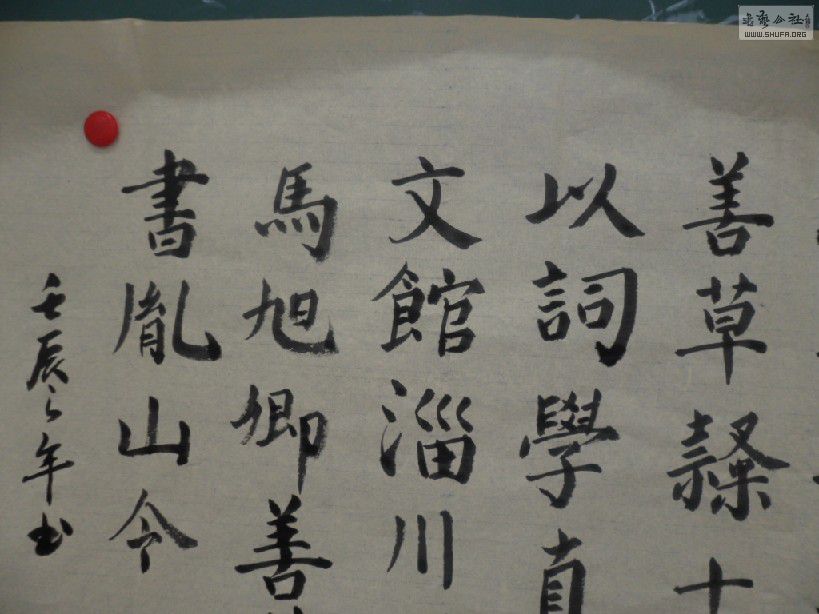 善草隸十
以詞學真
文館淄川
馬旭卿善
書胤山令
壬辰年书
WWW.SHUFA.ORG